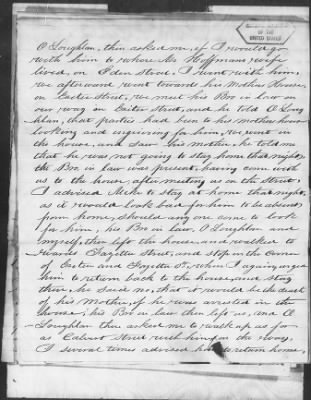 OF THE
UNITED STATES
O'Loughlan, then asked me, if I would go
with him to where Mr Hoffmans, wife
lived, on Eden Street. I went with him,
we afterward went towards his Mother House,
on Exeter Street, we met his Bro in Law on
our way on Exeter Street, and he told O'Lough
lan, that parties had been to his mothers house
looking and inquiring for him, we went in
the house, and saw his mother, he told me
that he was not going to stay home that night,
the Bro, in law was present, having come with
us to the house after meeting us on the Street,
I advised Mike to stay at home that night,
as it would look bad for him to be absent
from home, should any one come to look
for him, his Bro in Law, O'Loughlan and
myself, then left the house, and walked to
wards Fayette Street, and stop in the corner
of Exeter and Fayette Sts, when I again urged
him to return back to the house, and stay
there he said no, that it would be the death
of his Mother, if he was arrested in the
house; his Bro in law then left us, and O
Loughlan then asked me to walk up as far
as Calvert Street with him, on the way.
I several times advised him to return home,